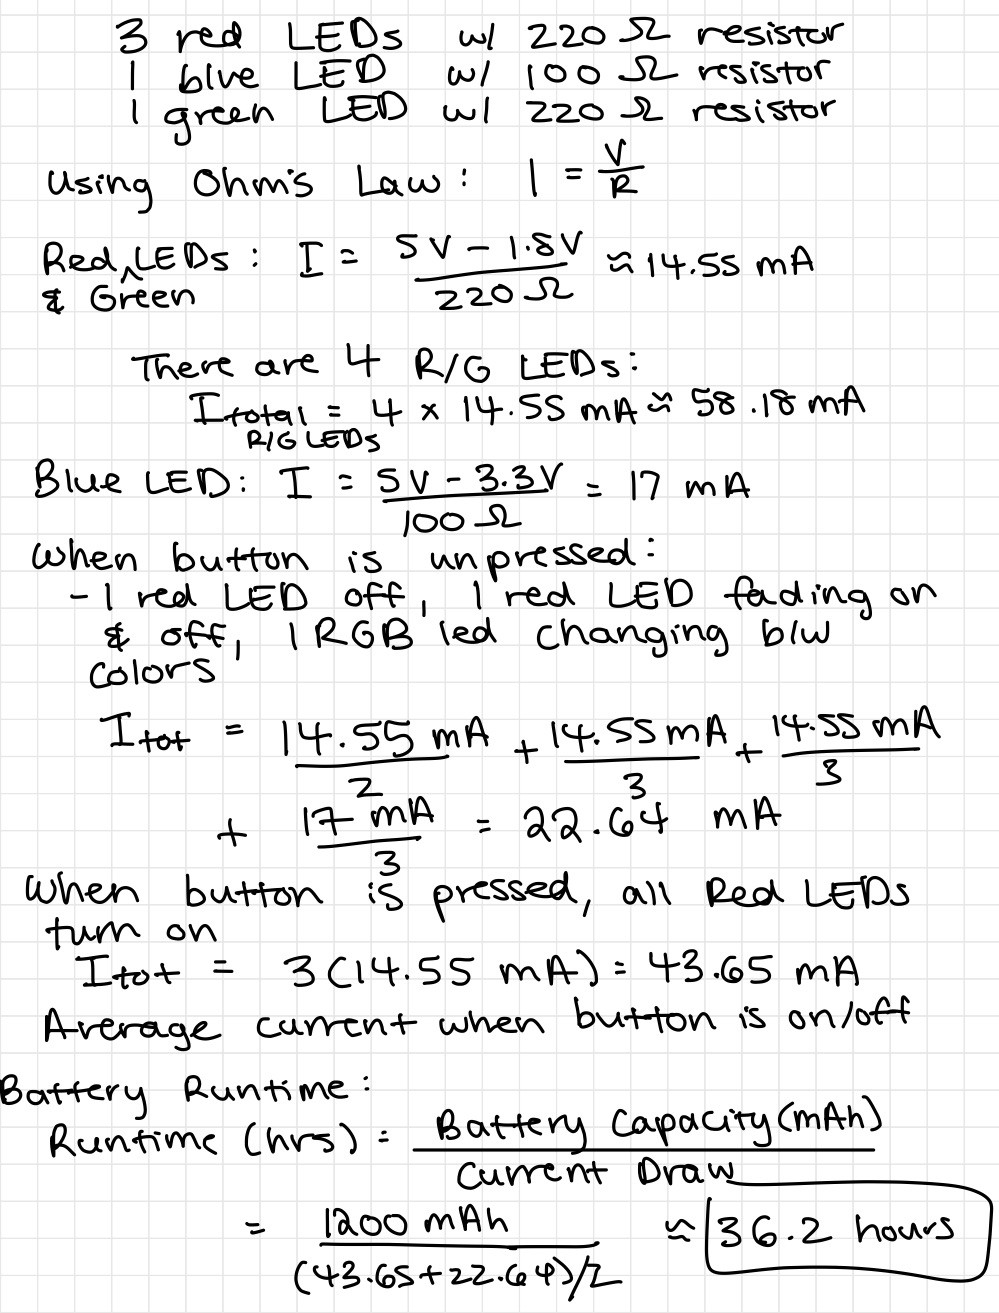 3 red LEDs w/ 220 Ω resistor
1 blue LED w/ 100 Ω resistor
1 green LED w/ 220 Ω resistor
Using Ohm's Law: I = V/R
Red & Green LEDs: I = (5V - 1.8V)/220 Ω ≈ 14.55 mA
There are 4 R/G LEDs:
Itotal R/G LEDs = 4 x 14.55 mA ≈ 58.18 mA
Blue LED: I = (5V - 3.3V)/100 Ω = 17 mA
When button is unpressed:
- 1 red LED off, 1 red LED fading on
& off, 1 RGB led changing b/w
colors
Itot = 14.55 mA/2 + 14.55 mA/3 + 14.55 mA/3
+ 17 mA/3 = 22.64 mA
When button is pressed, all Red LEDs
turn on
Itot = 3(14.55 mA) = 43.65 mA
Average current when button is on/off
Battery Runtime:
Runtime (hrs) = Battery Capacity (mAh)/Current Draw
= 1200 mAh/(43.65+22.64)/2 ≈ 36.2 hours